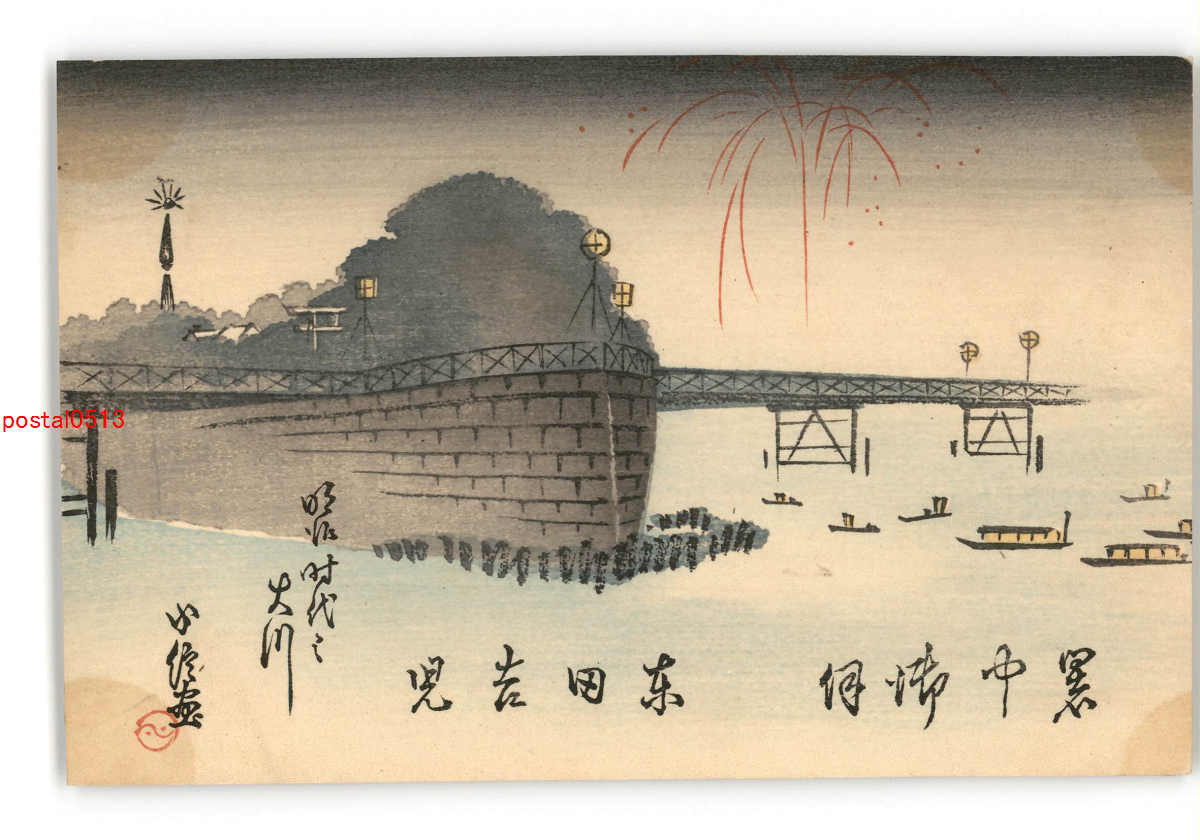 暑中御伺 東田吉児
明治時代之
大川
小信画
postal0513